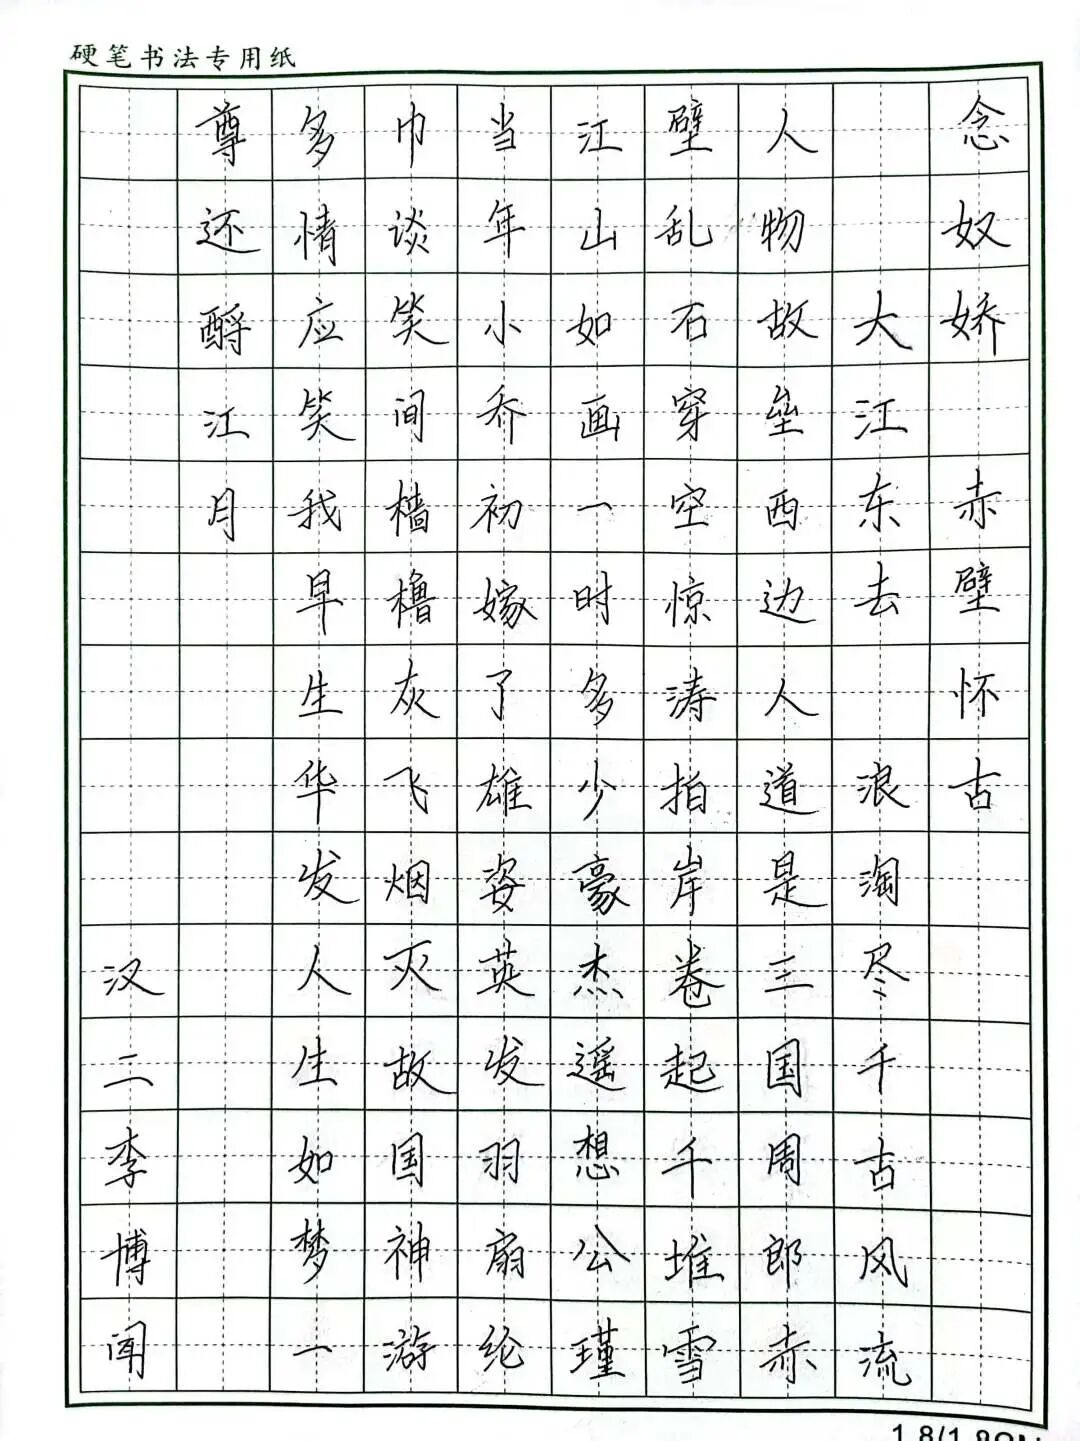 硬笔书法专用纸
念奴娇 赤壁怀古
大江东去 浪淘尽千古风流
人物故垒西边人道是三国周郎赤
壁乱石穿空惊涛拍岸卷起千堆雪
江山如画一时多少豪杰遥想公瑾
当年小乔初嫁了雄姿英发羽扇纶
巾谈笑间樯橹灰飞烟灭故国神游
多情应笑我早生华发人生如梦一
尊还酹江月
汉二李博闻